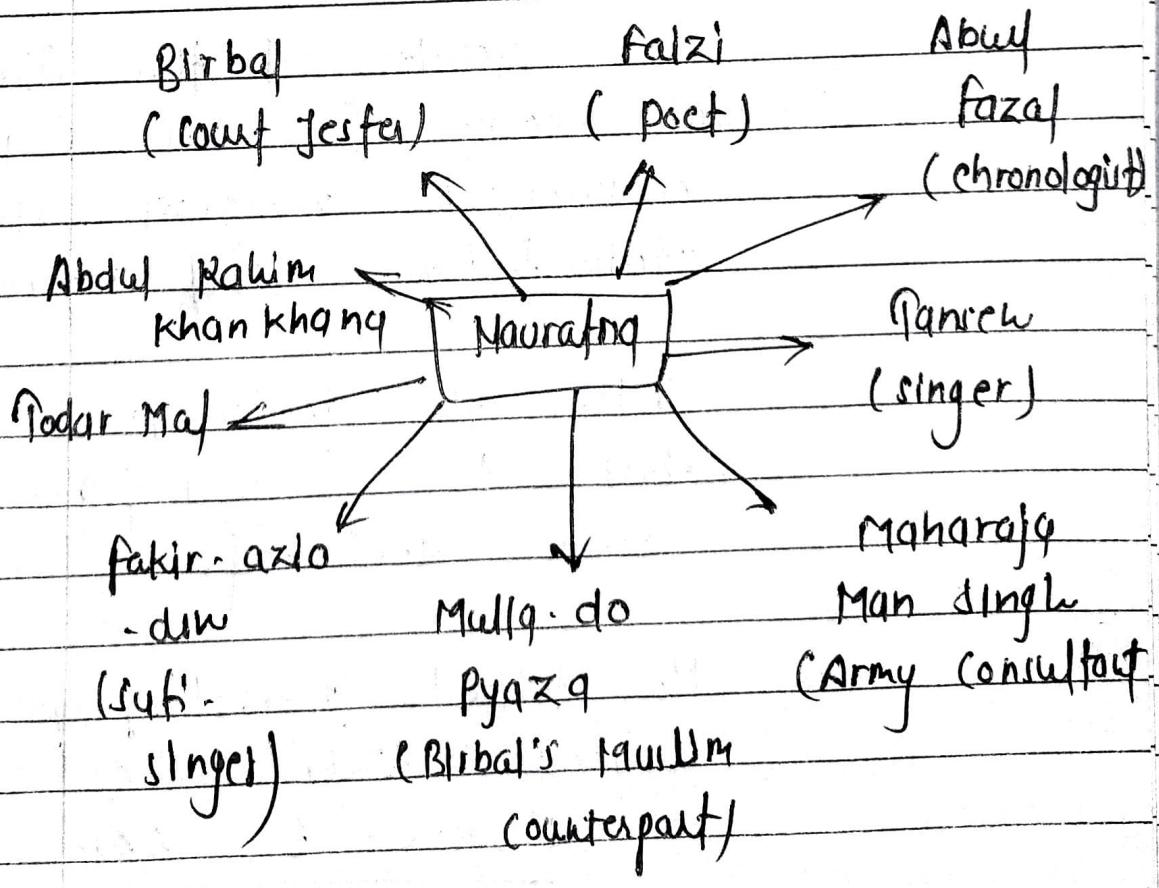 Birbal
(Court Jester)
Faizi
(poet)
Abul
Fazal
(chronologist)
Abdul Rahim
Khan Khana
Navratna
Tansen
(singer)
Todar Mal
Fakir-azio
-din
(sufi-
singer)
Mulla-do
Pyaza
(Birbal's Muslim
counterpart)
Maharaja
Man Singh
(Army Consultant